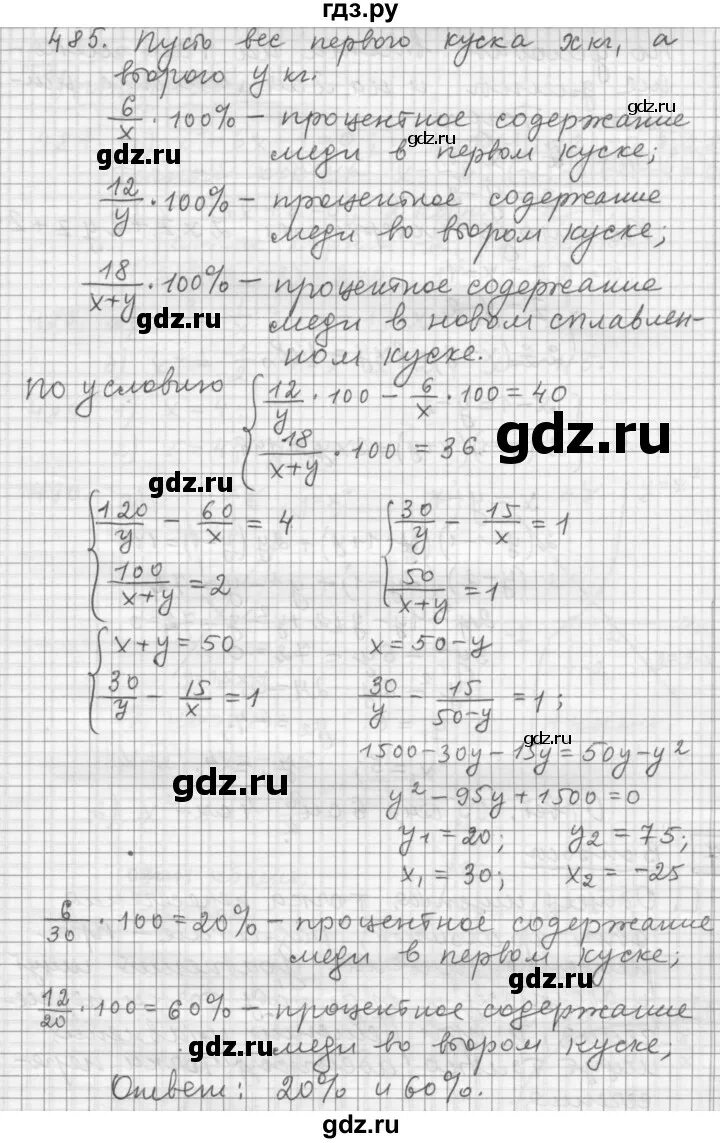 гдз.ру
485. Пусть вес первого куска x кг, а
второго y кг.
6/x · 100% – процентное содержание
меди в первом куске;
gdz.ru
gdz.ru
gdz.ru
12/y · 100% – процентное содержание
меди во втором куске;
gdz.ru
18/(x+y) · 100% – процентное содержание
меди в новом сплавлен-
ном куске.
gdz.ru
по условию { 12/y · 100 – 6/x · 100 = 40
18/(x+y) · 100 = 36.
gdz.ru
gdz.ru
{ 120/y – 60/x = 4 { 30/y – 15/x = 1
100/(x+y) = 2 50/(x+y) = 1
gdz.ru
{ x + y = 50 x = 50 – y
30/y – 15/x = 1 30/y – 15/(50–y) = 1;
gdz.ru
1500 – 30y – 15y = 50y – y²
gdz.ru
y² – 95y + 1500 = 0
y₁ = 20; y₂ = 75;
x₁ = 30; x₂ = –25
gdz.ru
6/30 · 100 = 20% – процентное содержание
меди в первом куске;
gdz.ru
12/20 · 100 = 60% – процентное содержание
меди во втором куске;
gdz.ru
Ответ: 20% и 60%.
gdz.ru